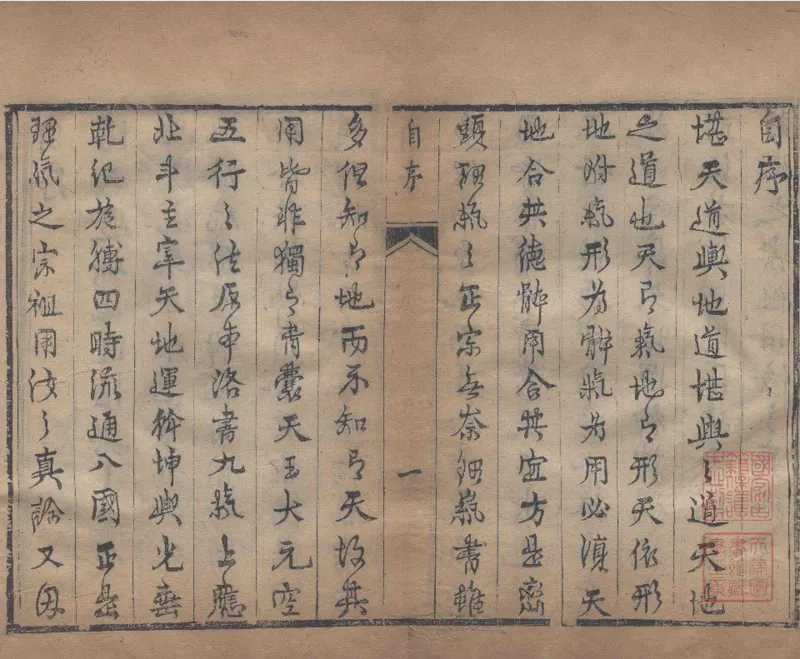 自序
堪天道輿地道堪輿之道天地
之道也天有氣地有形天依形
地附氣形為體氣為用必須天
地合其德體用合其宜方是巒
頭理氣之正宗無奈理氣書雖
自序
一
多但知有地而不知有天故其
用皆非獨有青囊天玉大元空
五行之法原本洛書九氣上應
北斗主宰天地運斡坤輿光垂
乾紀施膊四時流通八國正是
理氣之宗祖用法之真詮又因